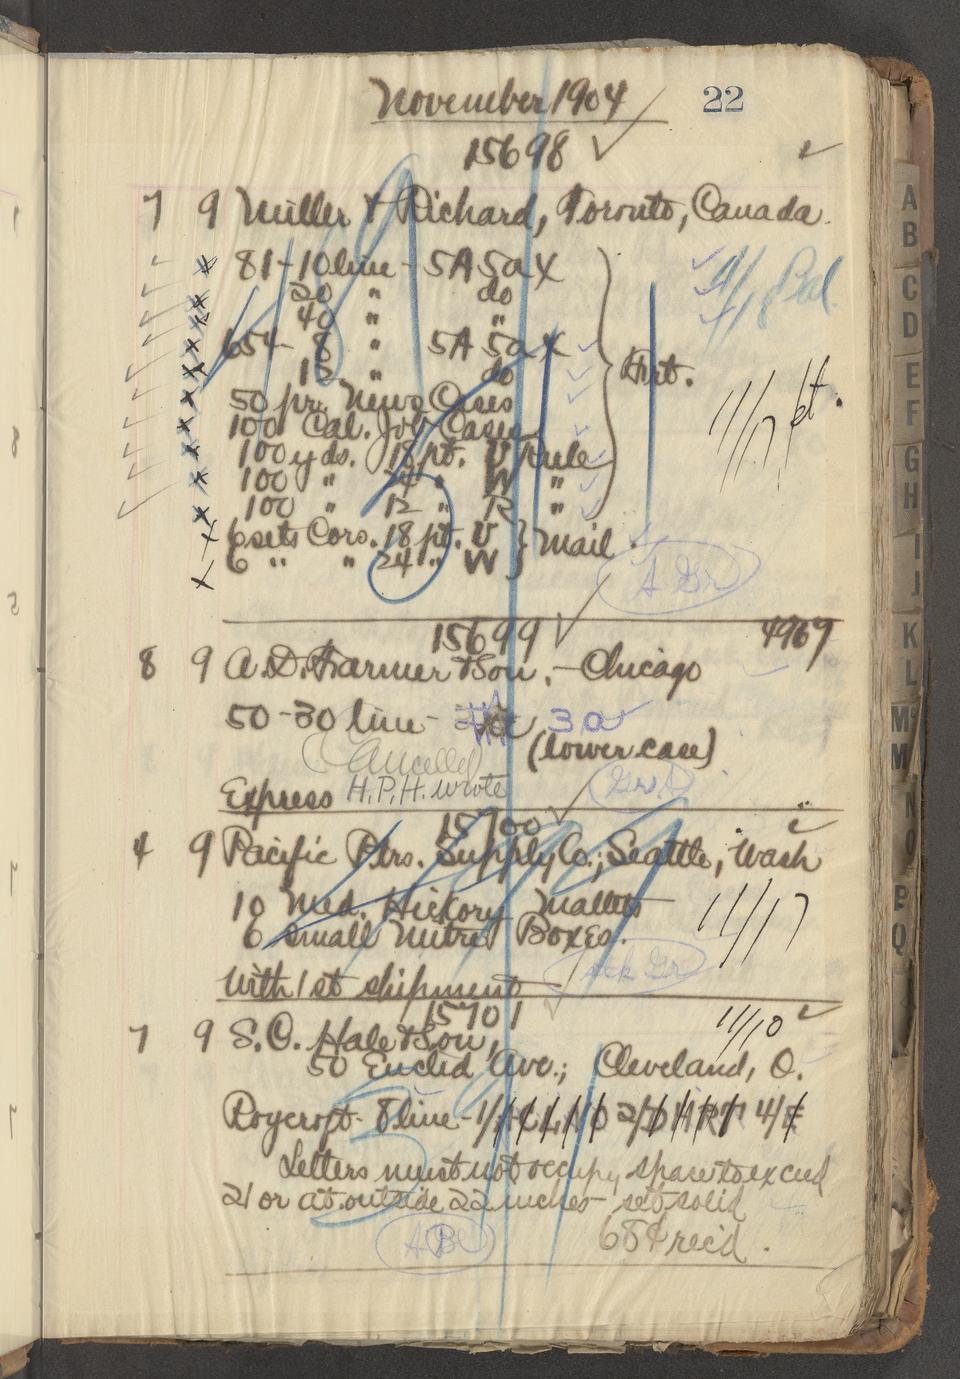 November 1904 22
15698
7 9 Miller & Richard, Toronto, Canada.
81-10 line - 5A 5a X
20 " do
40 " "
654- 8 " 5A 5a X
15 " do
11/18 Bal.
Frt.
50 pr. News Cases
100 Cal. Job Cases
11/17 pt.
100 yds. 18 pt. V Rule
100 " 24 " W "
100 " 12 " R "
6 sets Cors. 18 pt. V
6 " " 24 " W
Mail.
A Gr
15699 4969
8 9 A. D. Farmer & Son, - Chicago
50-30 line - 3a
(lower case)
Cancelled
H.P.H. wrote
Express
15700
4 9 Pacific Ptrs. Supply Co.; Seattle, Wash
10 Med. Hickory Mallets
6 small Mitre Boxes.
11/17
stk Gr
With 1st shipment
15701
11/10
7 9 S. O. Hale & Son,
50 Euclid Ave.; Cleveland, O.
Roycroft- 8 line - 1/ACLNO 2/DHRT 4/E
Letters must not occupy space to exceed
21 or at outside 22 inches - set solid
68¢ rec'd.
AB